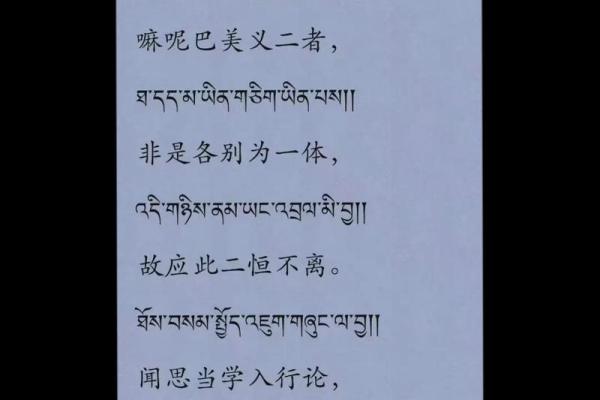 嘛呢巴美义二者，
ཐ་དད་མ་ཡིན་གཅིག་ཡིན་པས།།
非是各别为一体，
འདི་གཉིས་ནམ་ཡང་འབྲལ་མི་བྱ།།
故应此二恒不离。
ཐོས་བསམ་སྤྱོད་འཇུག་གཞུང་ལ་བྱ།།
闻思当学入行论，